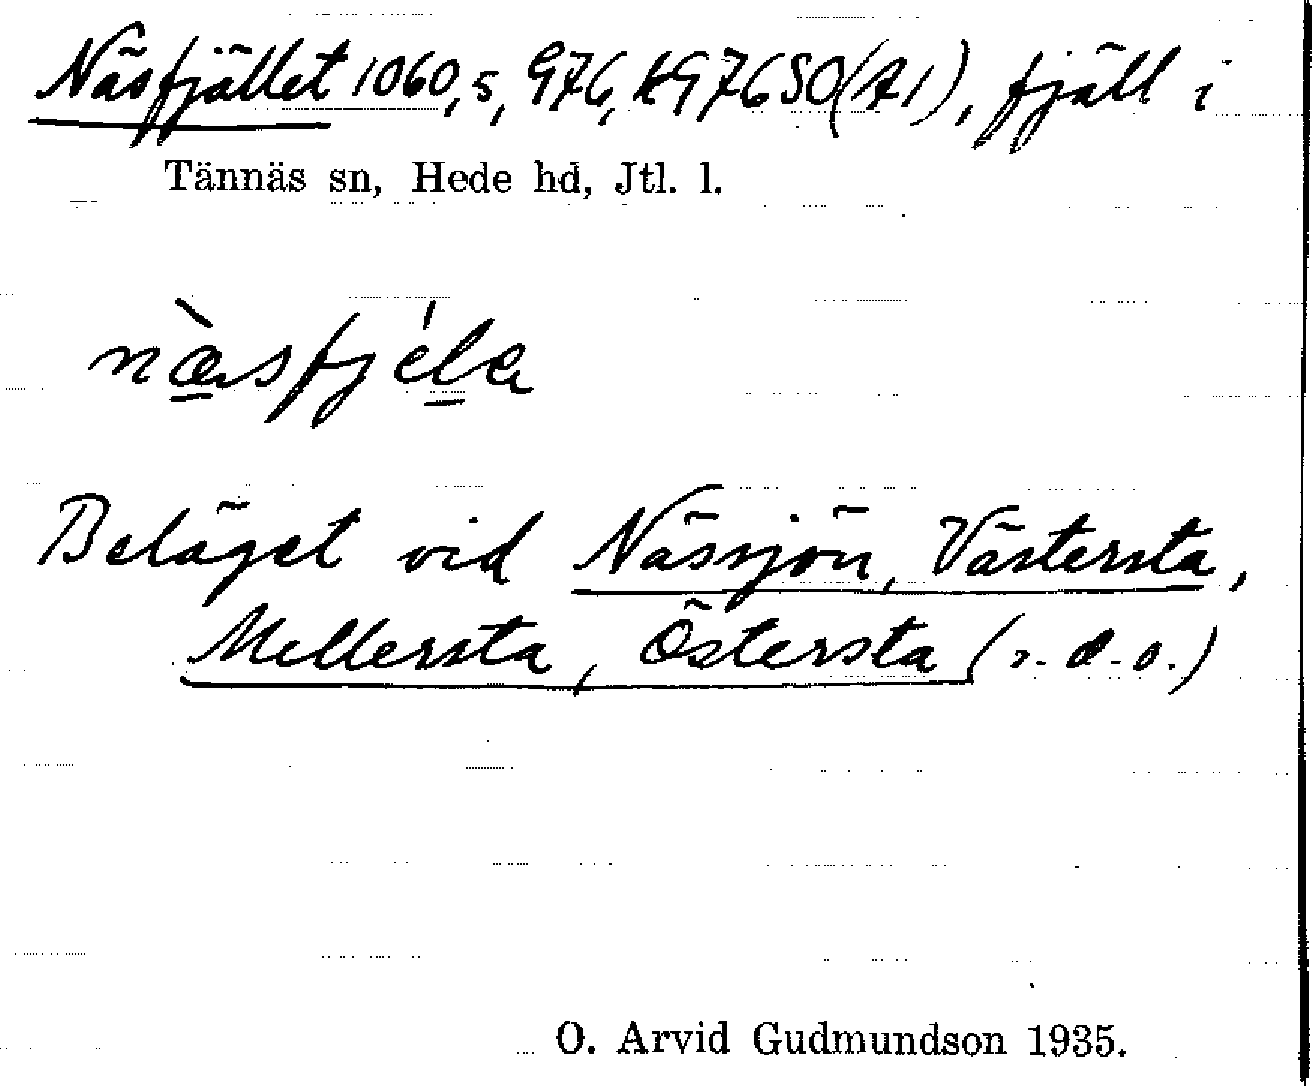 Näsfjället 1060,5, 976, k97650(A1), fjäll i
Tännäs sn, Hede hd, Jtl. l.
Beläget vid Nässjön, Västersta,
Mellersta, Östersta (s.d.o.)
O. Arvid Gudmundson 1935.